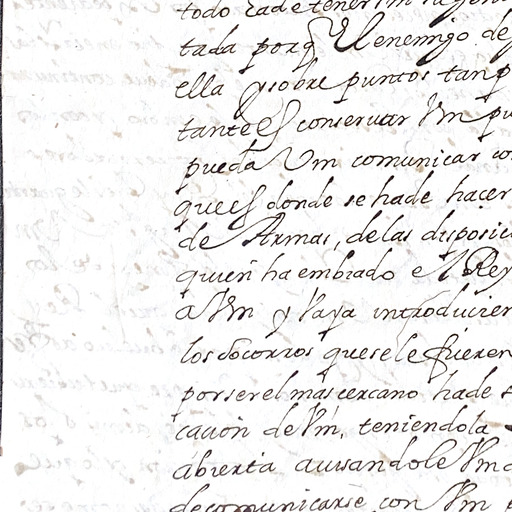 todo ha de tener
tada porq El enemigo de
ella y sobre puntos tan
tante es conservar Vm
pueda Vm comunicar
que es donde se ha de hacer
de Armas, de las disposici
quien ha embiado el Rey
a Vm y Vaya introducien
los socorros que se le fueren
por ser el mas cercano ha de
cacion de Vm, teniendola
abierta avisandole Vm
de comunicarse con Vm